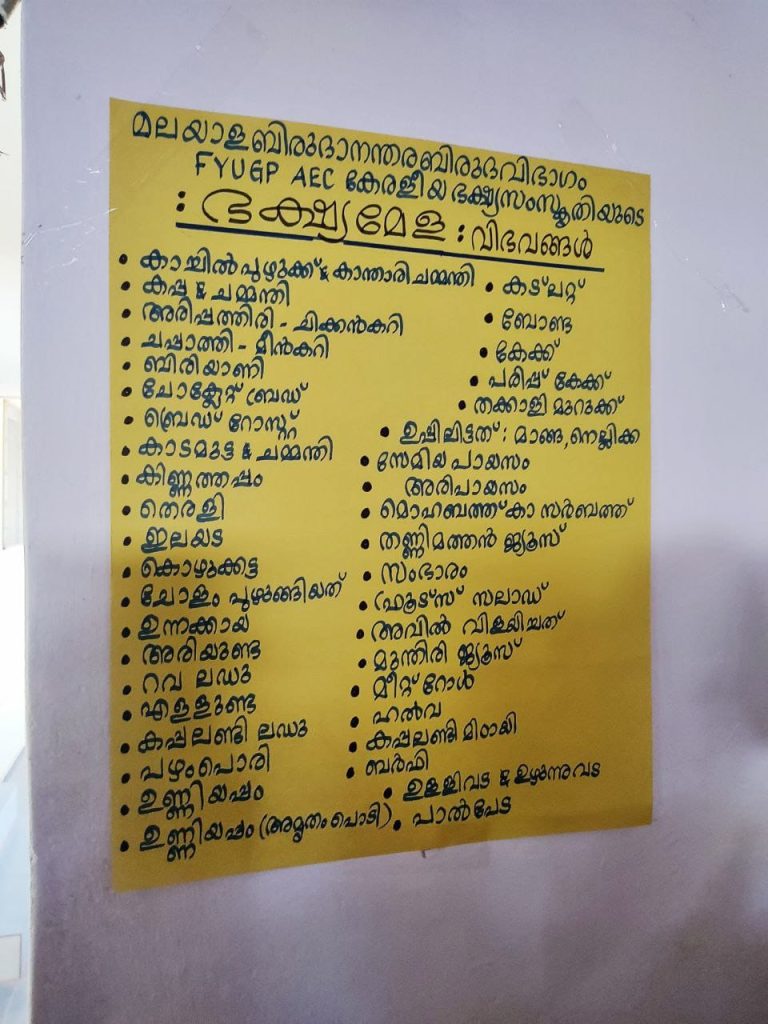 മലയാളബിരുദാനന്തരബിരുദവിഭാഗം
FYUGP AEC കേരളീയ ഭക്ഷ്യസംസ്കൃതിയുടെ
: ഭക്ഷ്യമേള : വിഭവങ്ങൾ
• കാച്ചിൽപുഴുക്ക് & കാന്താരി ചമ്മന്തി
• കപ്പ & ചമ്മന്തി
• അരിപ്പത്തിരി - ചിക്കൻകറി
• ചപ്പാത്തി - മീൻകറി
• ബിരിയാണി
• ചോക്ലേറ്റ് ബ്രഡ്
• ബ്രെഡ് റോസ്റ്റ്
• കാടമുട്ട & ചമ്മന്തി
• കിണ്ണത്തപ്പം
• തെരളി
• ഇലയട
• കൊഴുക്കട്ട
• ചോളം പുഴുങ്ങിയത്
• ഉന്നക്കായ
• അരിയുണ്ട
• റവ ലഡു
• എള്ളുണ്ട
• കപ്പലണ്ടി ലഡു
• പഴംപൊരി
• ഉണ്ണിയപ്പം
• ഉണ്ണിയപ്പം (അമൃതം പൊടി)
• കട്‌ലറ്റ്
• ബോണ്ട
• കേക്ക്
• പരിപ്പ് കേക്ക്
• തക്കാളി മുറുക്ക്
• ഉപ്പിലിട്ടത് : മാങ്ങ, നെല്ലിക്ക
• സേമിയ പായസം
• അരിപായസം
• മൊഹബത്ത് കാ സർബത്ത്
• തണ്ണിമത്തൻ ജ്യൂസ്
• സംഭാരം
• ഫ്രൂട്സ് സലാഡ്
• അവിൽ വിളയിച്ചത്
• മുന്തിരി ജ്യൂസ്
• മീറ്റ് റോൾ
• ഹൽവ
• കപ്പലണ്ടി മിഠായി
• ബർഫി
• ഉള്ളിവട & ഉഴുന്നുവട
• പാൽപേട